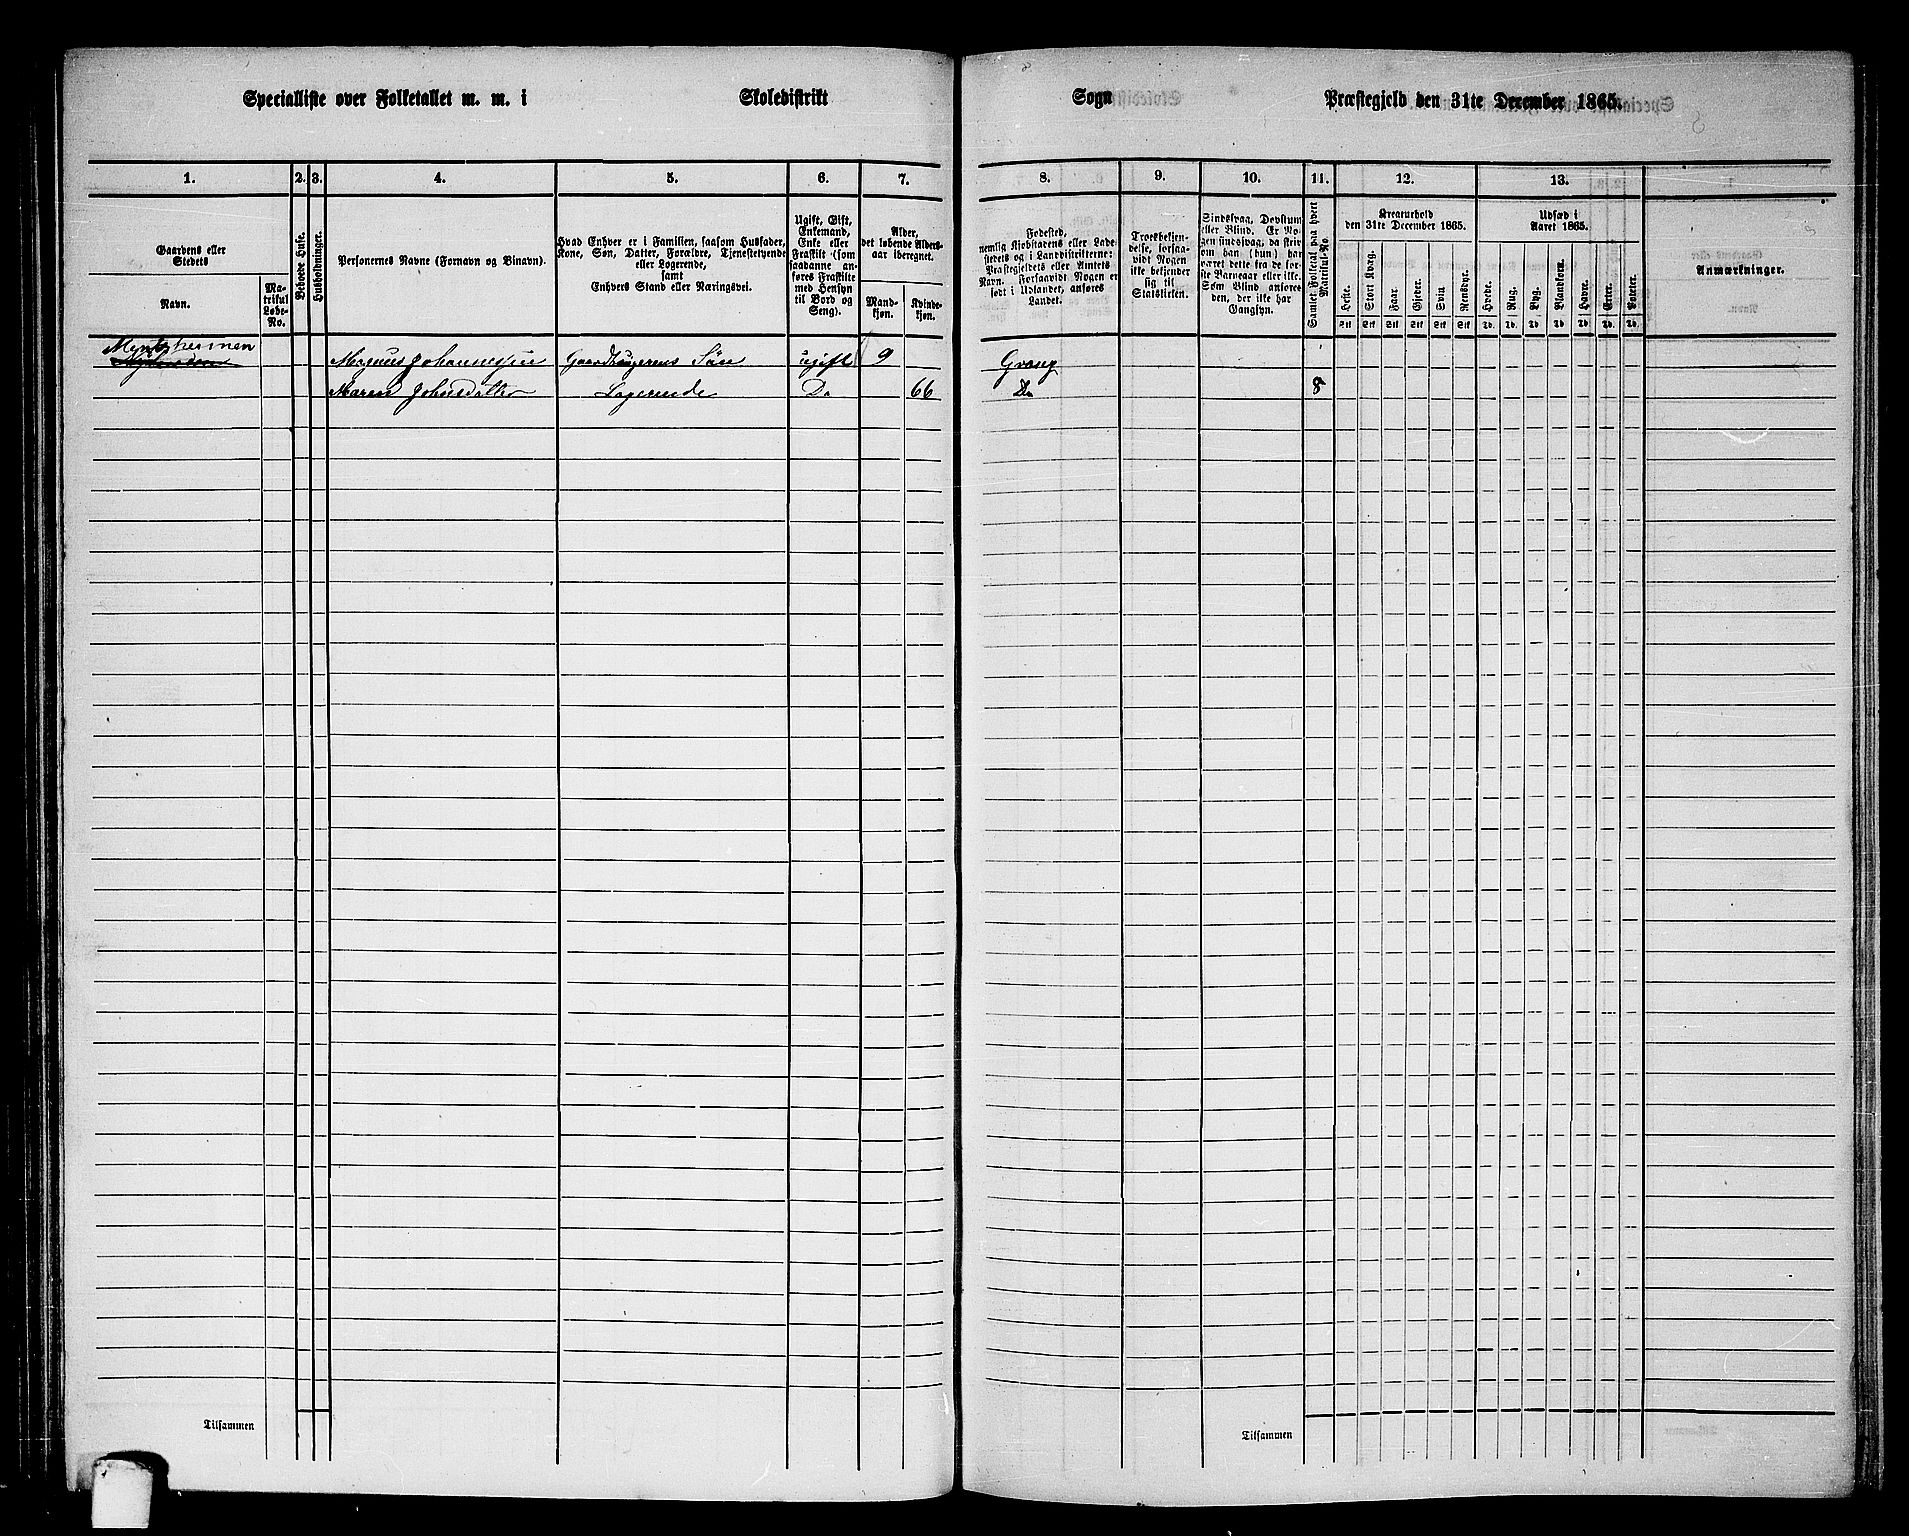 Specialliste over Folketallet m. m. i Skoledistrikt Sogn Præstegjeld den 31te December 1865.
1. 2. 3. 4. 5. 6. 7. 8. 9. 10. 11. 12. 13.
Gaardens eller
Stedets
Navn.
Ma-
trikul
Løbe-
No.
Beboede Huse.
Husholdninger.
Personernes Navne (Fornavn og Binavn).
Hvad Enhver er i Familien, saasom Husfader,
Kone, Søn, Datter, Forældre, Tjenestetyende
eller Logerende,
samt
Enhvers Stand eller Næringsvei.
Ugift, Gift,
Enkemand,
Enke eller
Fraskilt (som
saadanne an-
føres Fraskilte
med Hensyn
til Bord og
Seng).
Alder,
det løbende Alders-
aar iberegnet.
Mand-
kjøn.
Kvinde-
kjøn.
Fødested,
nemlig Kjøbstadens eller Lade-
stedets og i Landdistrikterne:
Præstegjeldets eller Amtets
Navn. Forsaavidt Nogen er
født i Udlandet, anføres
Landet.
Troesbekjen-
delse, forsaa-
vidt Nogen
ikke bekjender
sig til
Statskirken.
Sindssvag, Døvstum
eller Blind. Er No-
gen sindssvag, da skriv
om han (hun) har
været dette fra de før-
ste Barneaar eller ikke.
Som Blind anføres
den, der ikke har
Gangsyn.
Samlet Folketal paa hvert
Matrikul-No.
Kreaturhold
den 31te December 1865.
Heste. Stort Kvæg. Faar. Gjeder. Svin. Rensdyr.
Stk Stk Stk Stk Stk Stk
Udsæd i
Aaret 1865.
Hvede. Rug. Byg. Blandkorn. Havre. Erter. Poteter.
Td. Td. Td. Td. Td. Td. Td.
Anmærkninger.
Magnus Johannessen Gaardbrugerens Søn ugift 9 Grong
Maren Johnsdatter Logerende Do 66 Do 8
Tilsammen Tilsammen